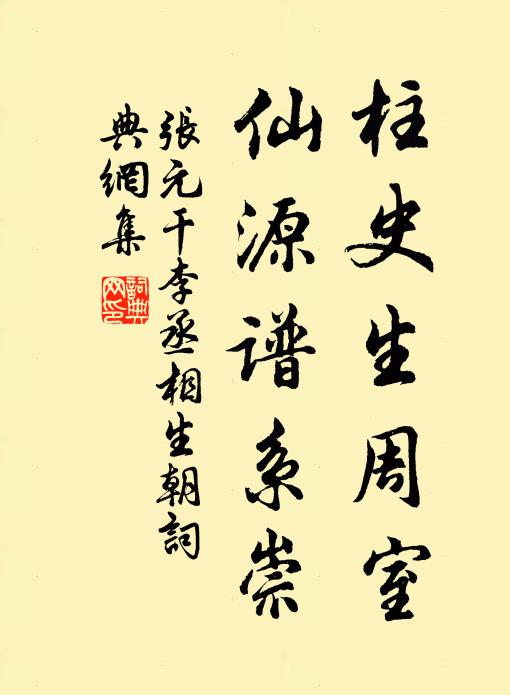 柱史生周室
仙源谱系崇
張元干李丞相生朝詞
典網集
詞典
网印